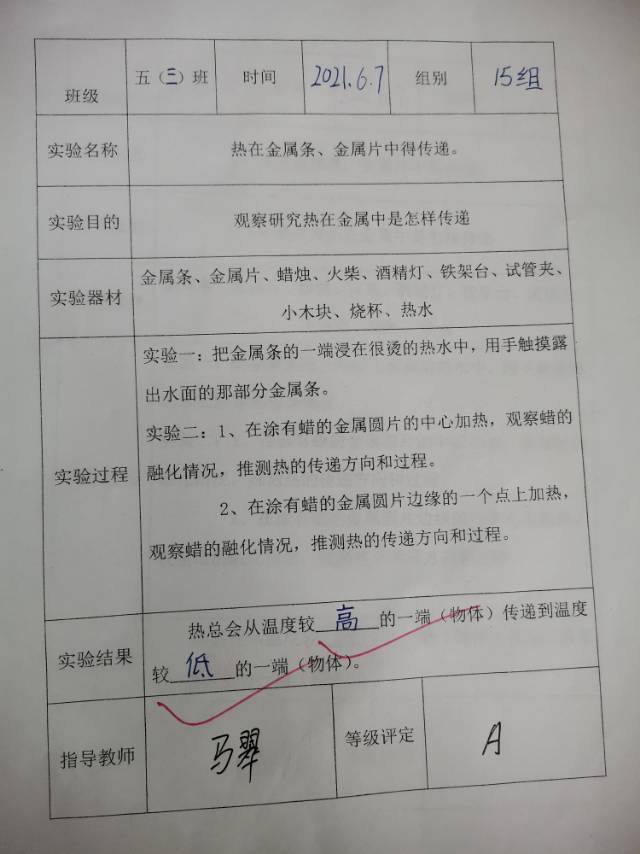 班级 五（三）班 时间 2021.6.7 组别 15组
实验名称 热在金属条、金属片中得传递。
实验目的 观察研究热在金属中是怎样传递
实验器材 金属条、金属片、蜡烛、火柴、酒精灯、铁架台、试管夹、
小木块、烧杯、热水
实验过程
实验一：把金属条的一端浸在很烫的热水中，用手触摸露
出水面的那部分金属条。
实验二：1、在涂有蜡的金属圆片的中心加热，观察蜡的
融化情况，推测热的传递方向和过程。
2、在涂有蜡的金属圆片边缘的一个点上加热，
观察蜡的融化情况，推测热的传递方向和过程。
实验结果
热总会从温度较 高 的一端（物体）传递到温度
较 低 的一端（物体）。
指导教师 马翠 等级评定 A